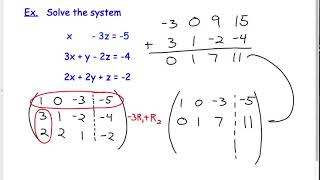 Ex. Solve the system
x - 3z = -5
3x + y - 2z = -4
2x + 2y + z = -2
-3 0 9 15
+ 3 1 -2 -4
0 1 7 11
1 0 -3 -5
3 1 -2 -4
2 2 1 -2
-3R₁+R₂
1 0 -3 -5
0 1 7 11